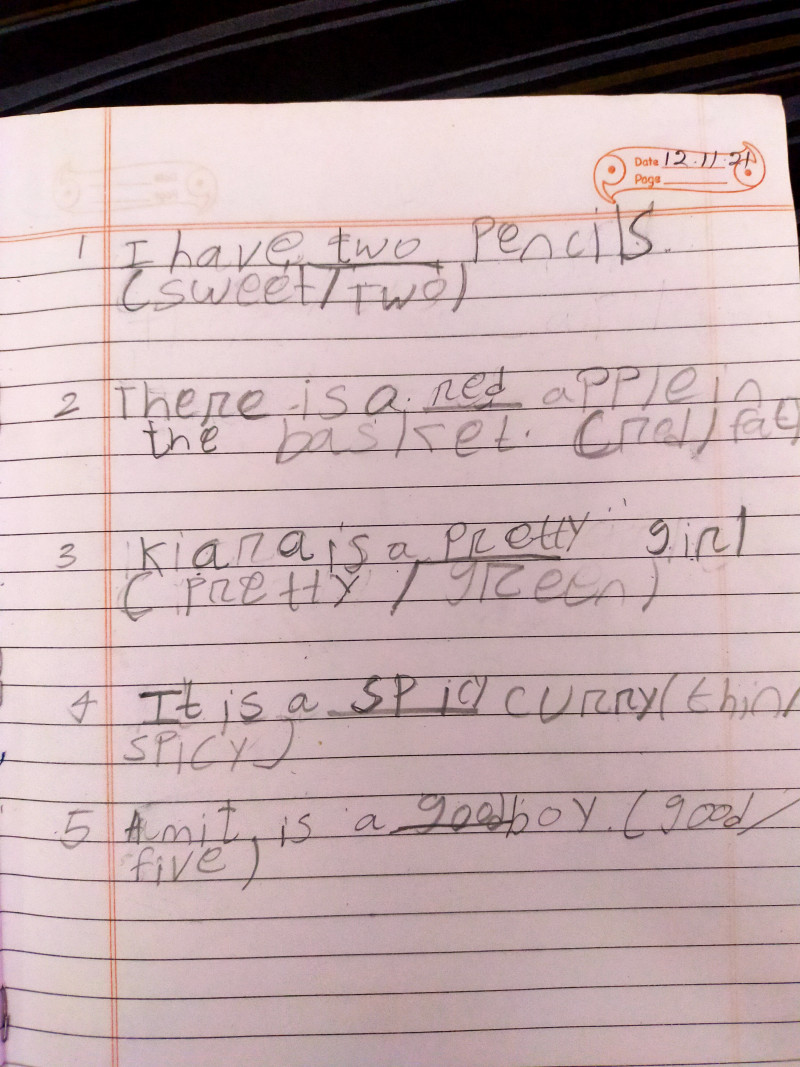 Date 12.11.21
Page
1 I have two pencils.
(sweet/Two)
2 There is a red apple in
the basket. (red/fat)
3 Kiara is a pretty girl
(pretty / green)
4 It is a spicy curry (thin/
spicy)
5 Amit is a good boy. (good/
five)